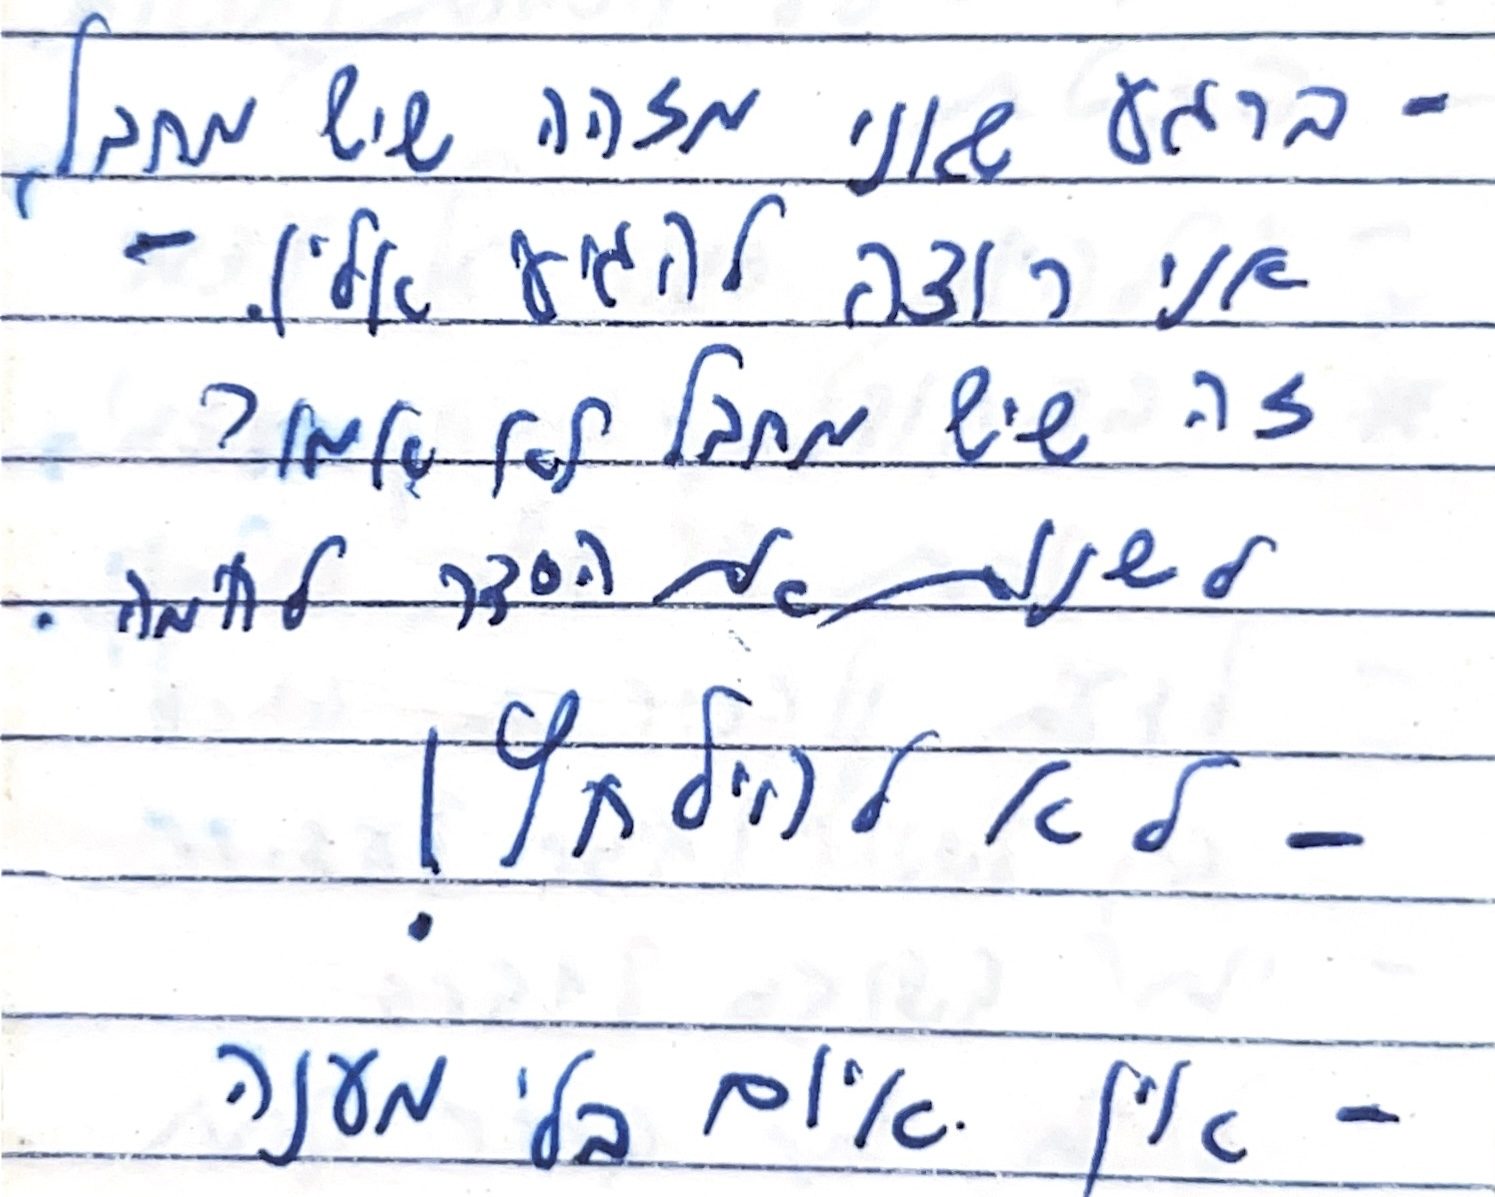 - ברגע שאני מזהה שיש מחבל,
אני רוצה להגיע אליו. -
זה שיש מחבל לא אומר?
לשנות את הסדר לחמה.
- לא להילחץ!
- אין איום בלי מענה